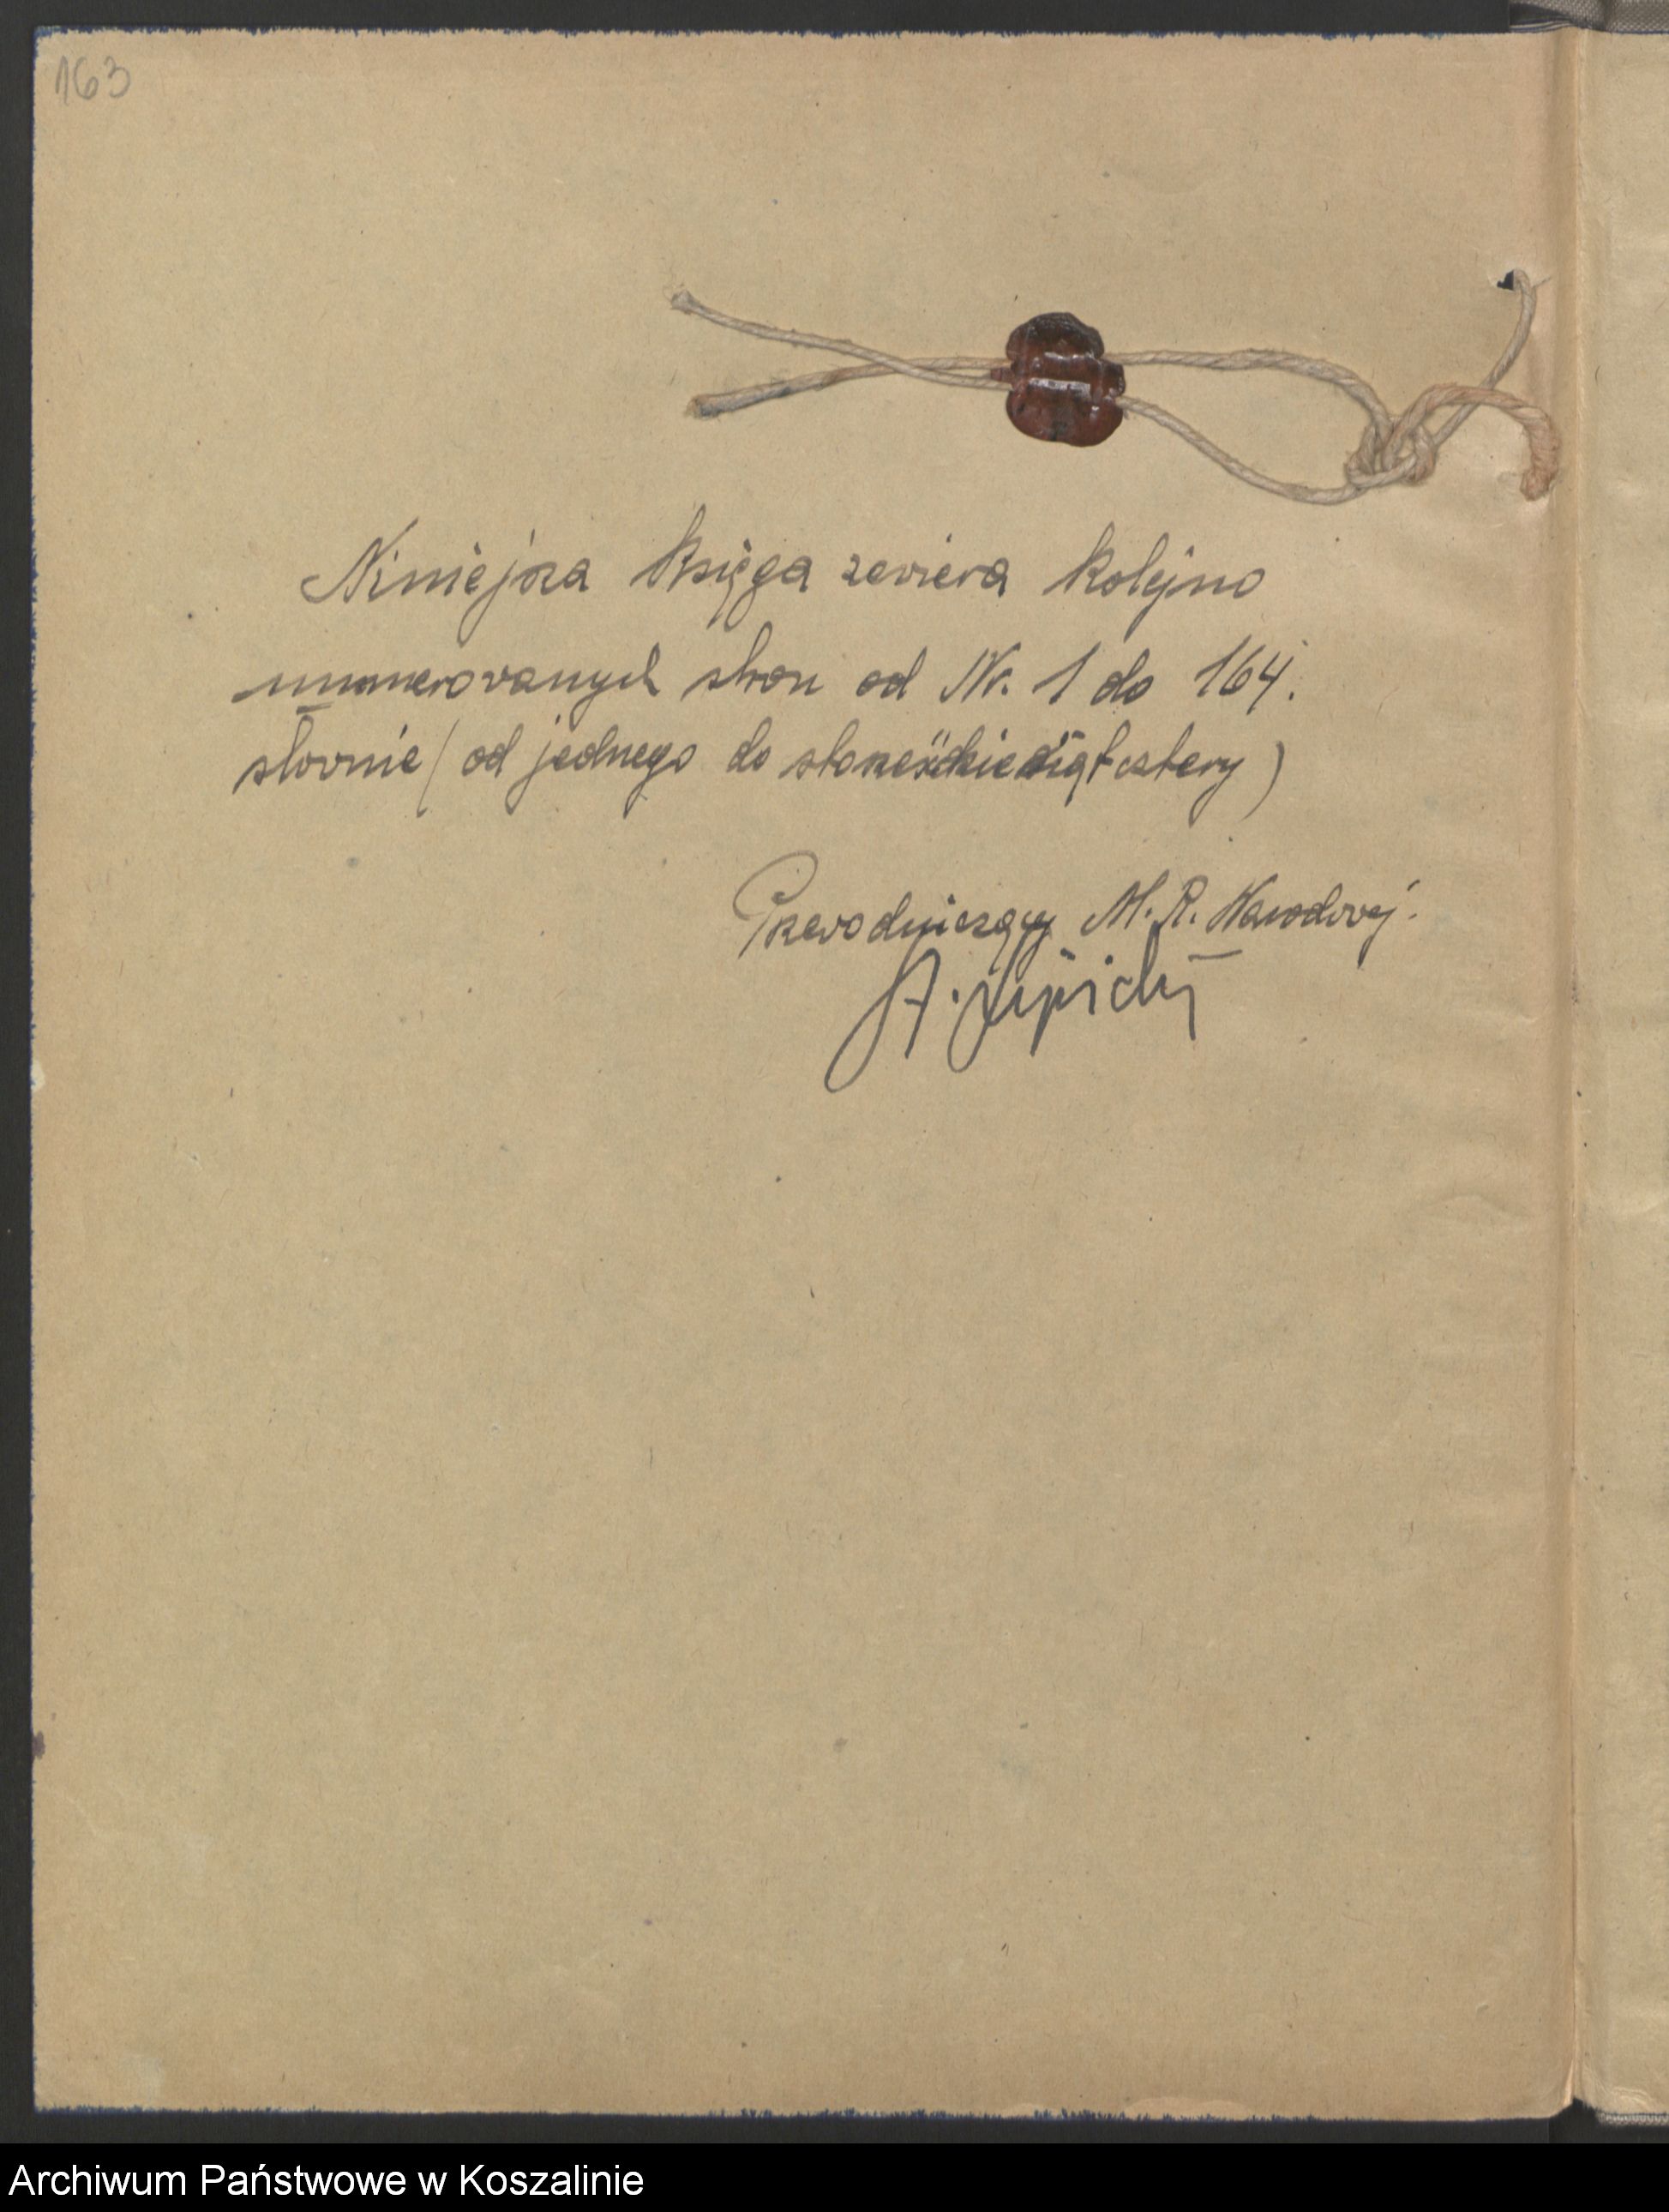 163
Niniejsza Księga zawiera kolejno
numerowanych stron od Nr. 1 do 164.
słownie (od jednego do stosześćdziesiątcztery)
Przewodniczący M. R. Narodowej.
A.
Archiwum Państwowe w Koszalinie